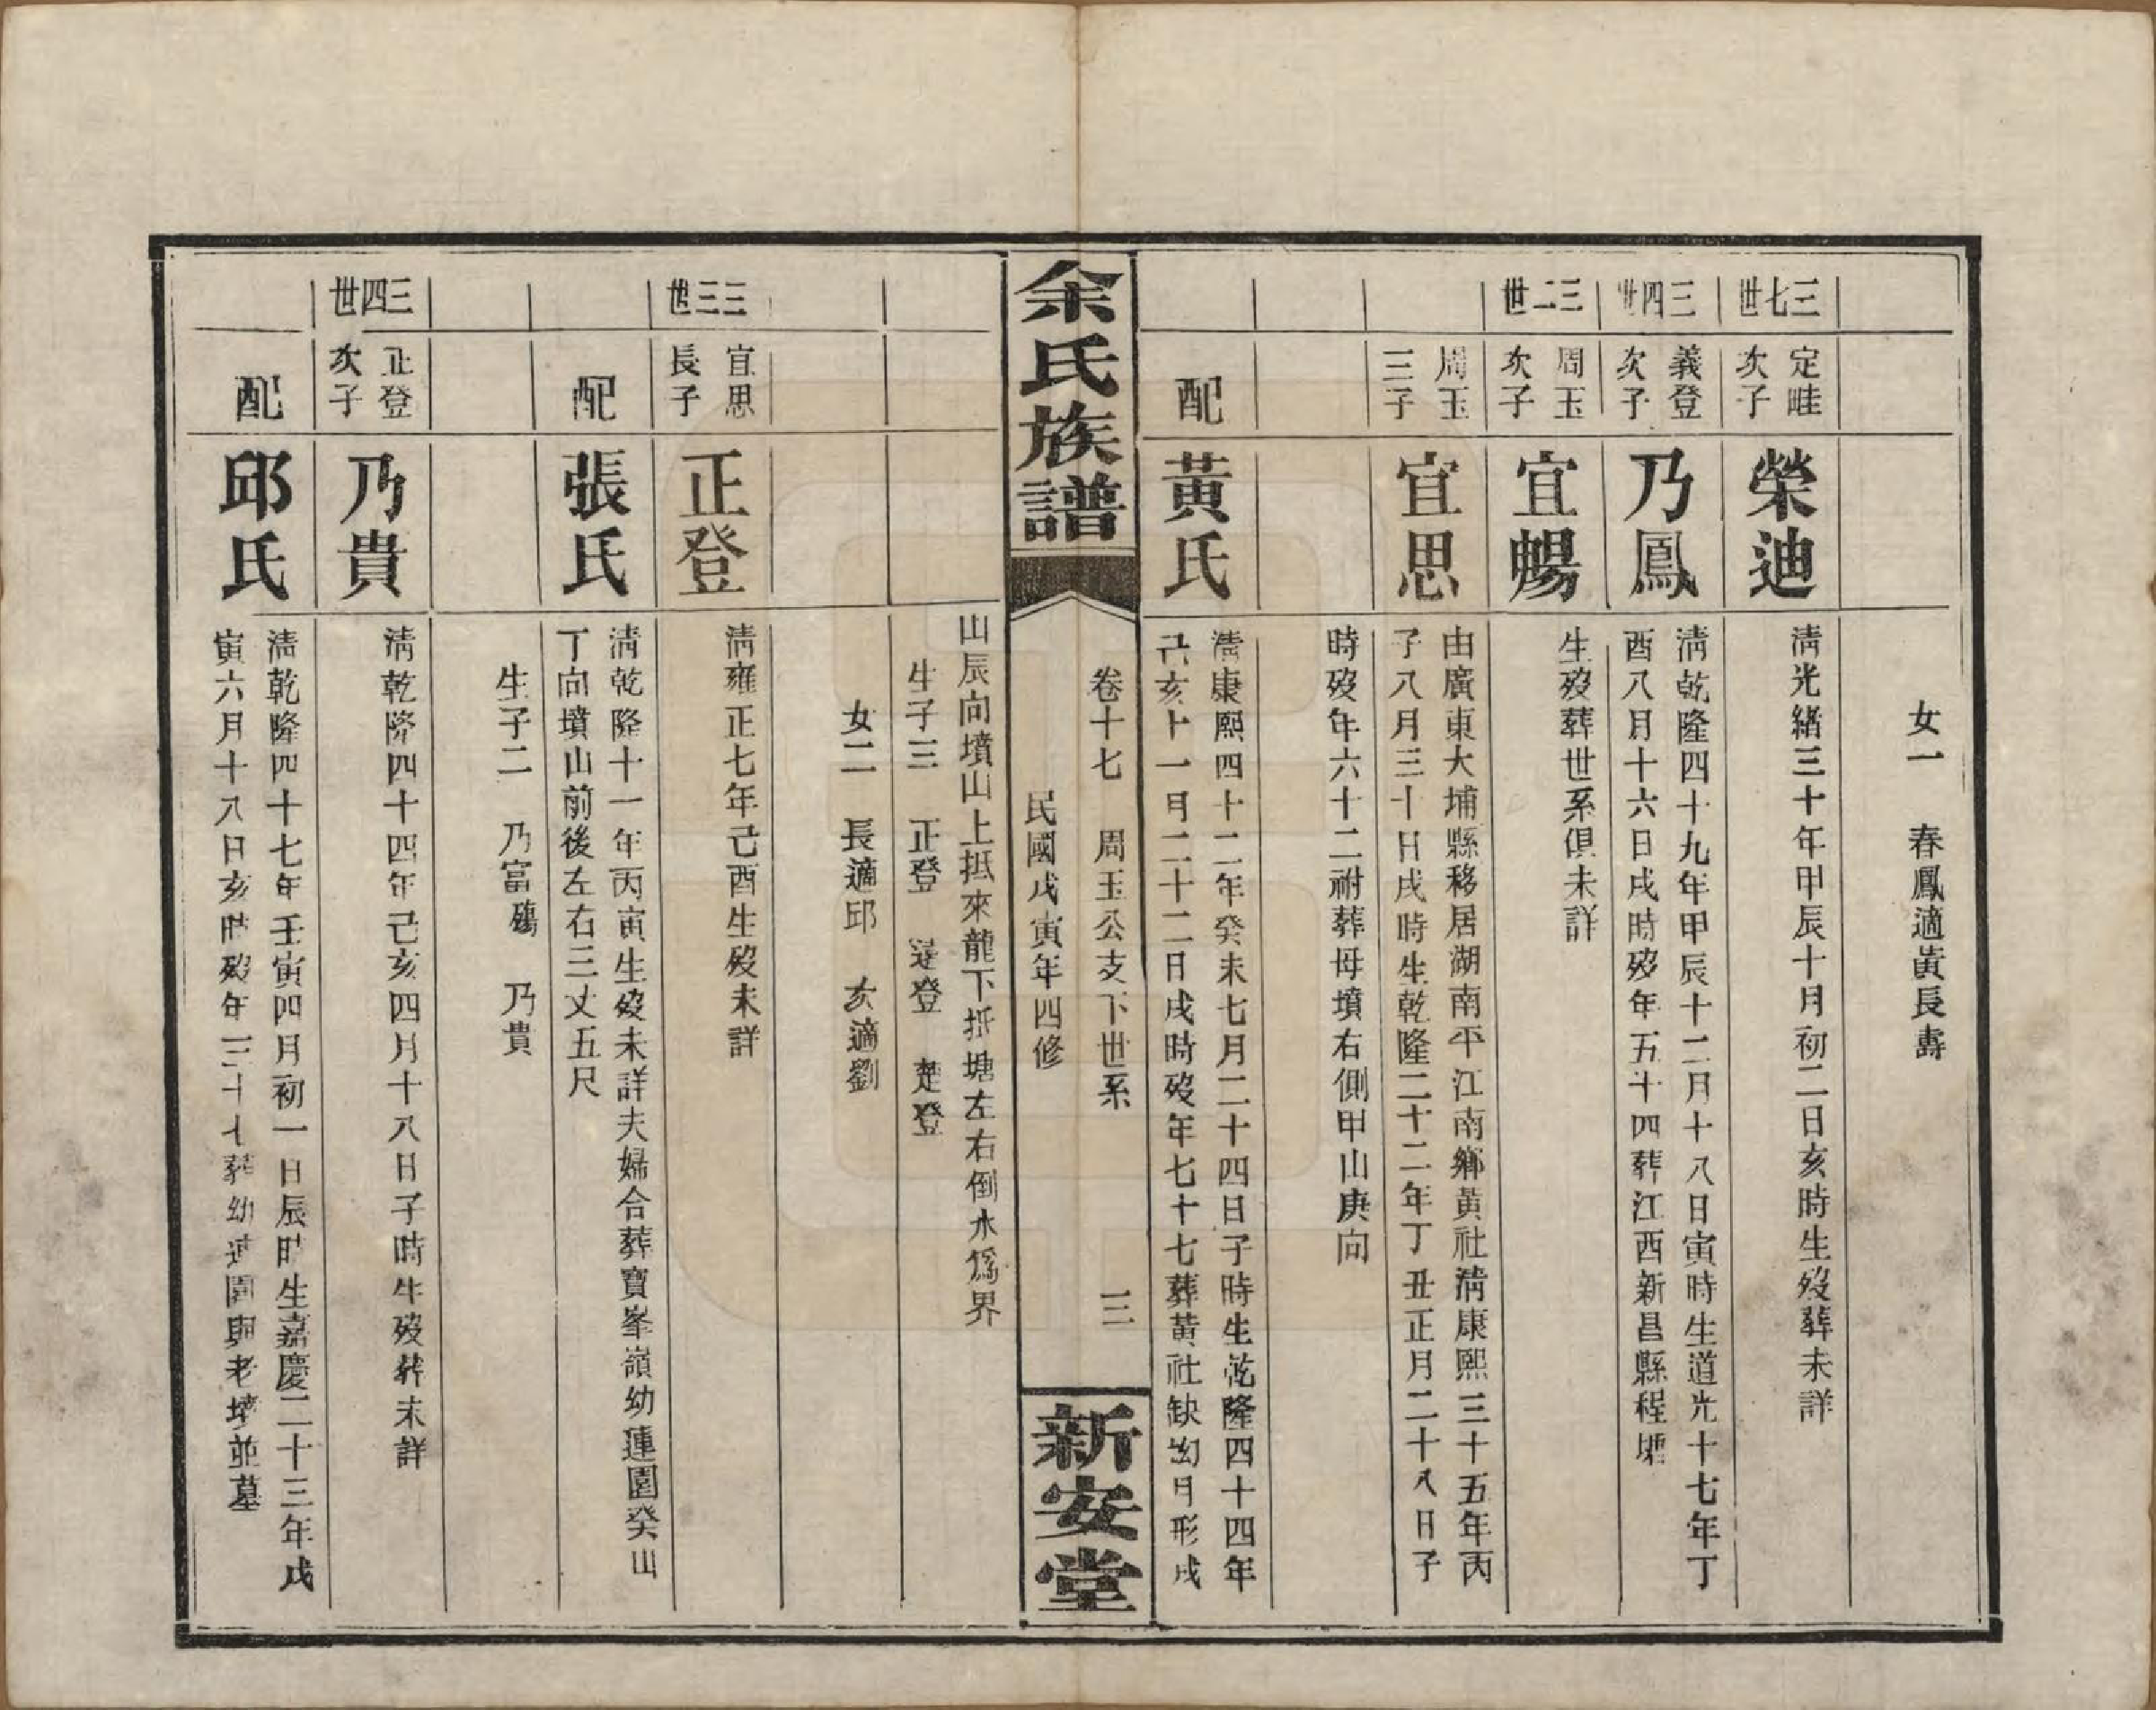 女一　春鳳適黃長壽
三七世
定畦次子
榮迪
清光緒三十年甲辰十月初二日亥時生歿葬未詳
三四世
義登次子
乃鳳
清乾隆四十九年甲辰十二月十八日寅時生道光十七年丁
酉八月十六日戌時歿年五十四葬江西新昌縣程塘
三二世
周玉次子
宜暢
生歿葬世系俱未詳
周玉三子
宜思
由廣東大埔縣移居湖南平江南鄉黃社清康熙三十五年丙
子八月三十日戌時生乾隆二十二年丁丑正月二十八日子
時歿年六十二祔葬母墳右側甲山庚向
配
黃氏
清康熙四十二年癸未七月二十四日子時生乾隆四十四年
己亥十一月二十二日戌時歿年七十七葬黃社缺幼月形戌
余氏族譜
卷十七　周玉公支下世系　三
民國戊寅年四修
新安堂
山辰向墳山上抵來龍下抵塘左右倒水爲界
生子三　正登　廷登　楚登
女二　長適邱　次適劉
三三世
宜思長子
正登
清雍正七年己酉生歿未詳
配
張氏
清乾隆十一年丙寅生歿未詳夫婦合葬寶峯嶺幼蓮園癸山
丁向墳山前後左右三丈五尺
生子二　乃富殤　乃貴
三四世
正登次子
乃貴
清乾隆四十四年己亥四月十八日子時生歿葬未詳
配
邱氏
清乾隆四十七年壬寅四月初一日辰時生嘉慶二十三年戊
寅六月十八日亥時歿年三十七葬幼蓮園與老墳並墓